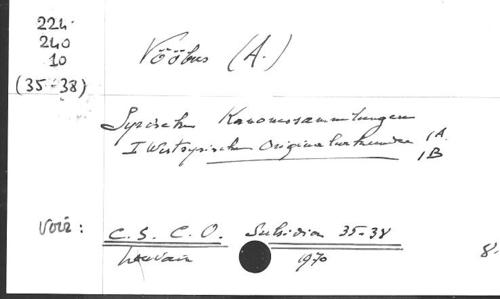 224.
240
10
(35-38)
Vööbus (A.)
Syrische Kanonessammlungen
I Westsyrische Originalurkunden 1, A.
1, B
Voir : C. S. C. O. Subsidia 35-38
Louvain 1970
8.